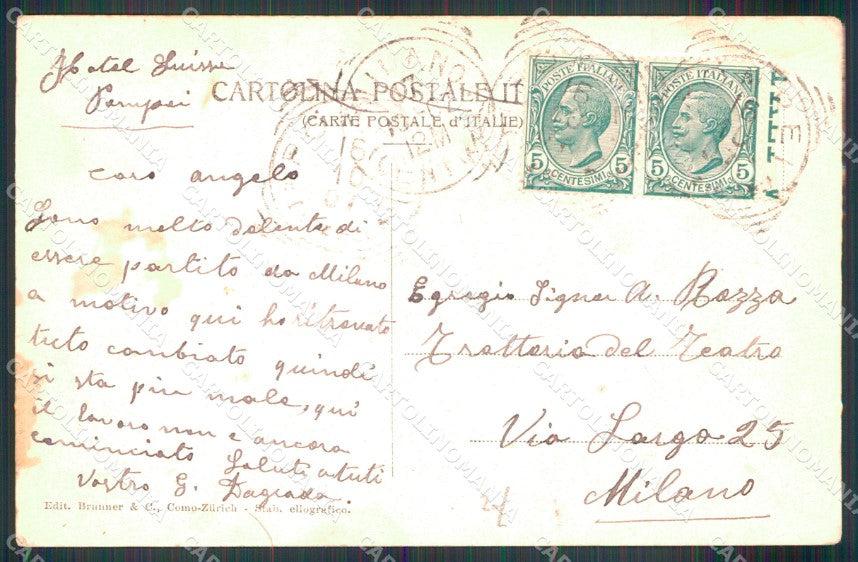 Hotel Suisse
Pompei
CARTOLINA POSTALE IT
(CARTE POSTALE d'ITALIE)
POSTE ITALIANE
5 CENTESIMI 5
POSTE ITALIANE
5 CENTESIMI 5
MILANO
16
10
Caro Angelo
Sono molto dolente di
essere partito da Milano
a motivo qui ho ritrovato
tuto cambiato quindi
si sta piu male, qui
il lavoro non e ancora
cominciato Saluti a tuti
Vostro G. Dagrada.
Egregio Signor A. Rozza
Trattoria del Teatro
Via Larga 25
Milano
Edit. Brunner & C., Como-Zürich - Stab. eliografico.
CARTOLINOMANIA